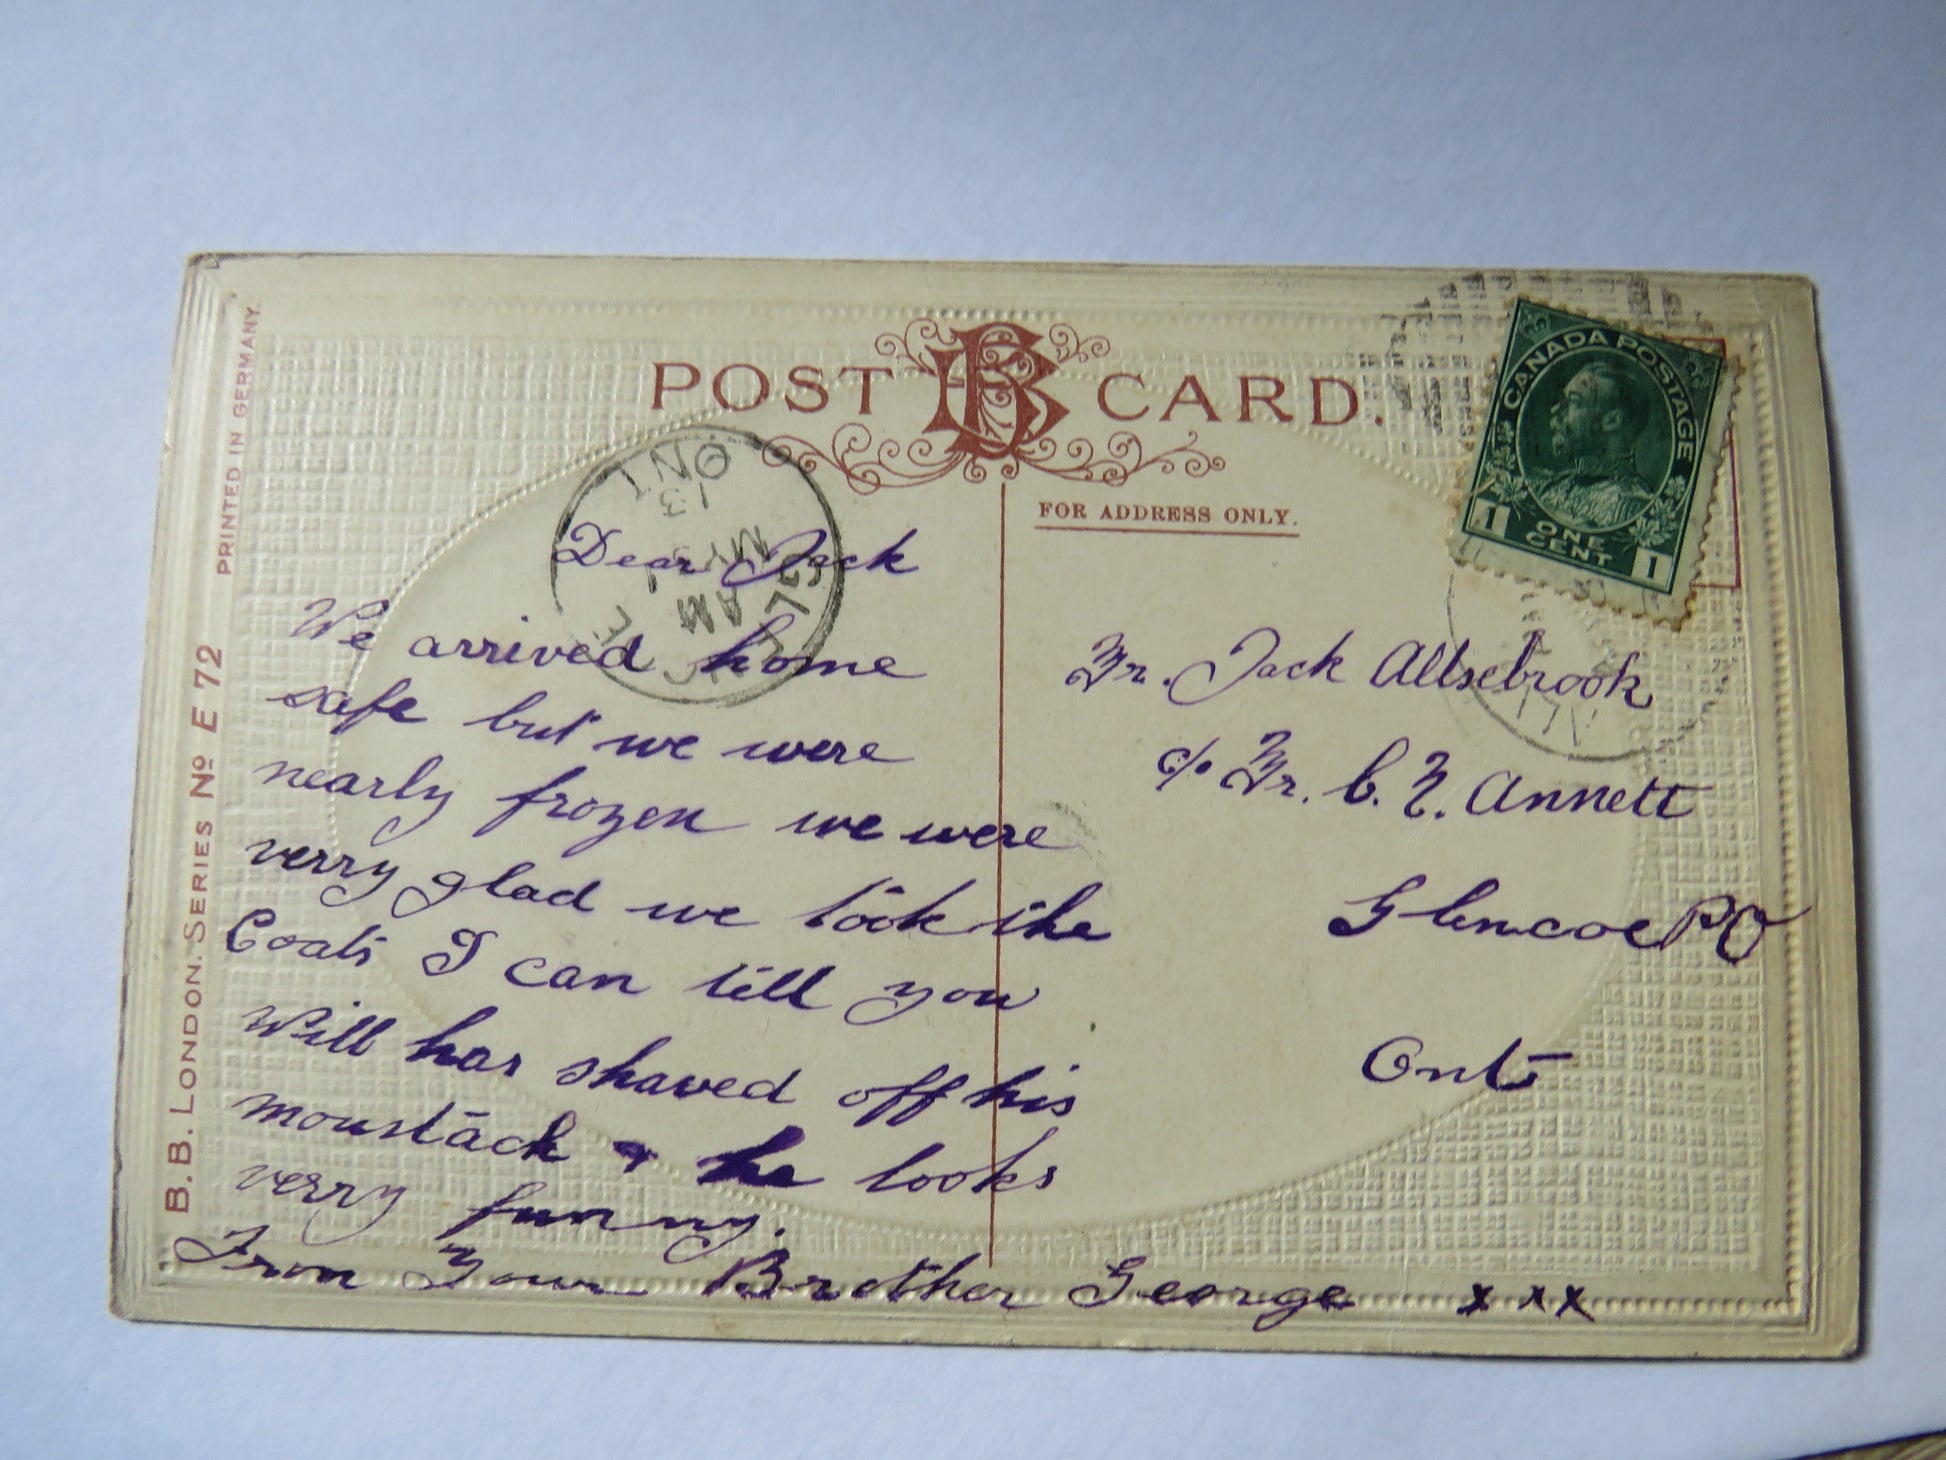 POST CARD.
BB
FOR ADDRESS ONLY.
CANADA POSTAGE
1 ONE CENT 1
PRINTED IN GERMANY.
B.B. LONDON. SERIES No E 72
ONT
13
MY 5
AM
Dear Jack
We arrived home
safe but we were
nearly frozen we were
verry glad we took the
Coats I can tell you
Will has shaved off his
moustack & he looks
verry funny.
From Your Brother George x x x
Mr. Jack Allsebrook
c/o Mr. C. N. Annett
Glencoe PO
Ont